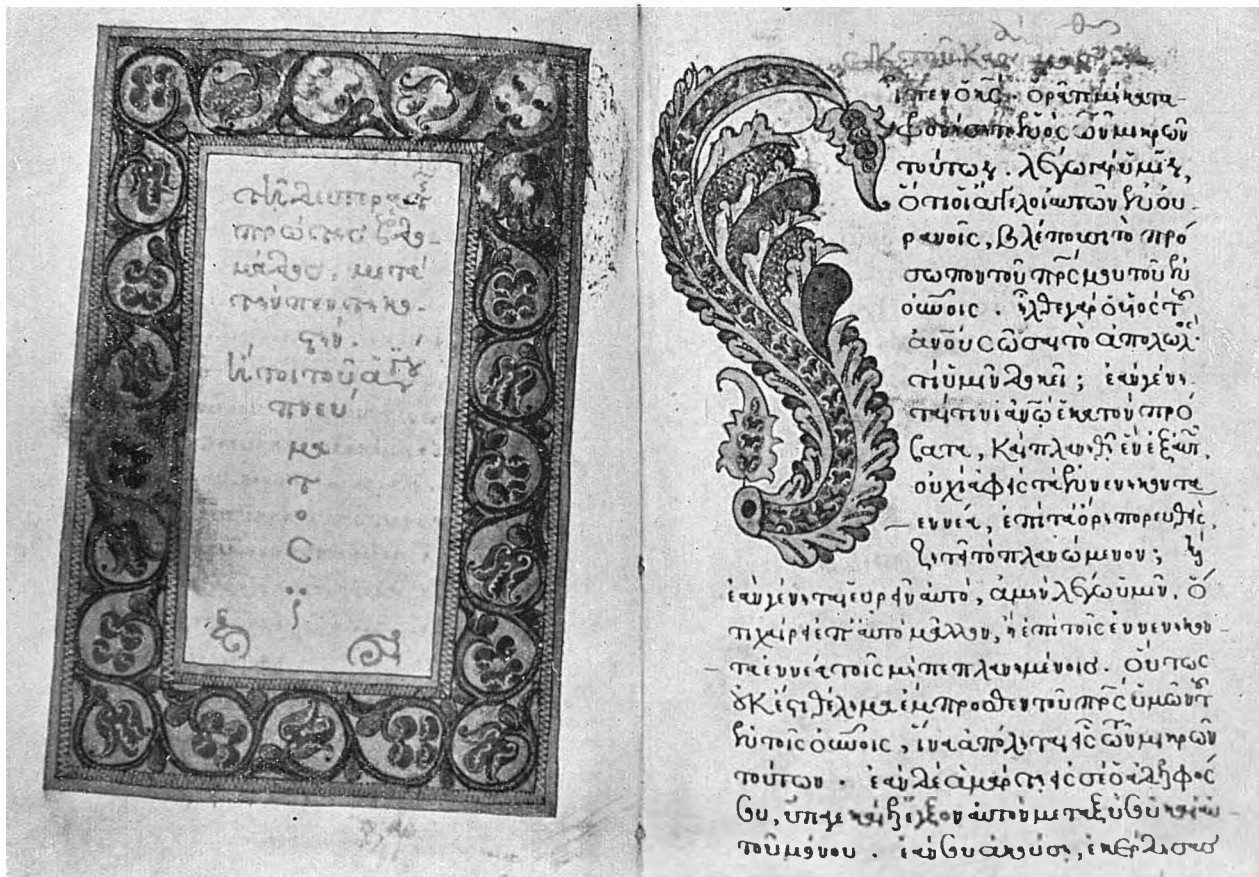 μετὰ
τὴν πεντηκο-
στήν.
ἤτοι τοῦ ἁγίου
πνεύ
μα
τ
ο
ς
εἶπεν ὁ κς̄. ὁρᾶτε μὴ κατα-
φρονήσητε ἑνὸς τῶν μικρῶν
τούτων. λέγω γὰρ ὑμῖν,
ὅτι οἱ ἄγγελοι αὐτῶν ἐν οὐ-
ρανοῖς, βλέπουσι τὸ πρό
σωπον τοῦ πρς̄ μου τοῦ ἐν
οὐνοῖς. ἦλθε γὰρ ὁ υἱὸς τοῦ
ἀνοῦ σῶσαι τὸ ἀπολωλὸς
τί ὑμῖν δοκεῖ; ἐὰν γένη
ταί τινι ἀνω̄ ἑκατὸν πρό
βατα, καὶ πλανηθῇ ἓν ἐξ αὐτ,
οὐχὶ ἀφεὶς τὰ ἐνενήκοντα
ἐννέα, ἐπὶ τὰ ὄρη πορευθεὶς,
ζητεῖ τὸ πλανώμενον; καὶ
ἐὰν γένηται εὑρεῖν αὐτό, ἀμὴν λέγω ὑμῖν, ὅ
τι χαίρει ἐπ' αὐτὸ μᾶλλον, ἢ ἐπὶ τοῖς ἐνενήκον-
τα ἐννέα τοῖς μὴ πεπλανημένοις. οὕτως
οὐκ ἔστι θέλημα ἔμπροσθεν τοῦ πρς̄ ὑμῶν τοῦ
ἐν τοῖς οὐνοῖς, ἵνα ἀπόληται εἷς τῶν μικρῶν
τούτων. ἐὰν δὲ ἁμάρτῃ εἰς σὲ ὁ ἀδελφός
σου, ὕπαγε καὶ ἔλεγξον αὐτὸν μεταξὺ σοῦ καὶ αὐ
τοῦ μόνου. ἐάν σου ἀκούσῃ, ἐκέρδησας